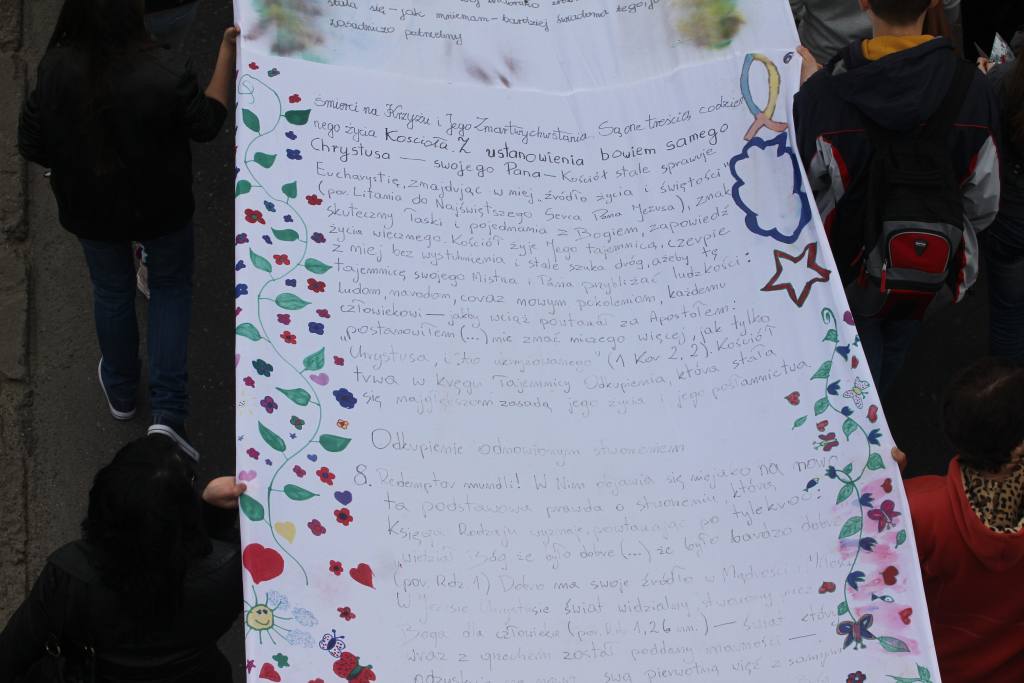 stała się – jak mniemam – bardziej świadoma tego,
zasadniczo potrzebny
śmierci na Krzyżu i Jego Zmartwychwstania. Są one treścią codzien
nego życia Kościoła. Z ustanowienia bowiem samego
Chrystusa — swojego Pana — Kościół stale sprawuje
Eucharystię, znajdując w niej „źródło życia i świętości"
(por. Litania do Najświętszego Serca Pana Jezusa), znak
skuteczny Łaski i pojednania z Bogiem, zapowiedź
życia wiecznego. Kościół żyje Jego tajemnicą, czerpie
z niej bez wytchnienia i stale szuka dróg, ażeby tę
tajemnicę swojego Mistrza i Pana przybliżać ludzkości:
ludom, narodom, coraz nowym pokoleniom, każdemu
człowiekowi — jakby wciąż powtarzał za Apostołem:
„postanowiłem (...) nie znać niczego więcej, jak tylko
Chrystusa, i to ukrzyżowanego" (1 Kor 2, 2). Kościół
trwa w kręgu Tajemnicy Odkupienia, która stała
się najgłębszą zasadą jego życia i jego posłannictwa.
Odkupienie odnowionym stworzeniem
8. Redemptor mundi! W Nim objawia się niejako na nowo
ta podstawowa prawda o stworzeniu, którą
Księga Rodzaju wyznaje, powtarzając po tylekroć:
„widział Bóg że było dobre (...) że było bardzo dobre"
(por. Rdz 1) Dobro ma swoje źródło w Mądrości i Miłości
W Jezusie Chrystusie świat widzialny stworzony przez
Boga dla człowieka (por. Rdz 1,26 nn.) — świat, który
wraz z grzechem został poddany marności —
odzyskuje na nowo swą pierwotną więź z samym